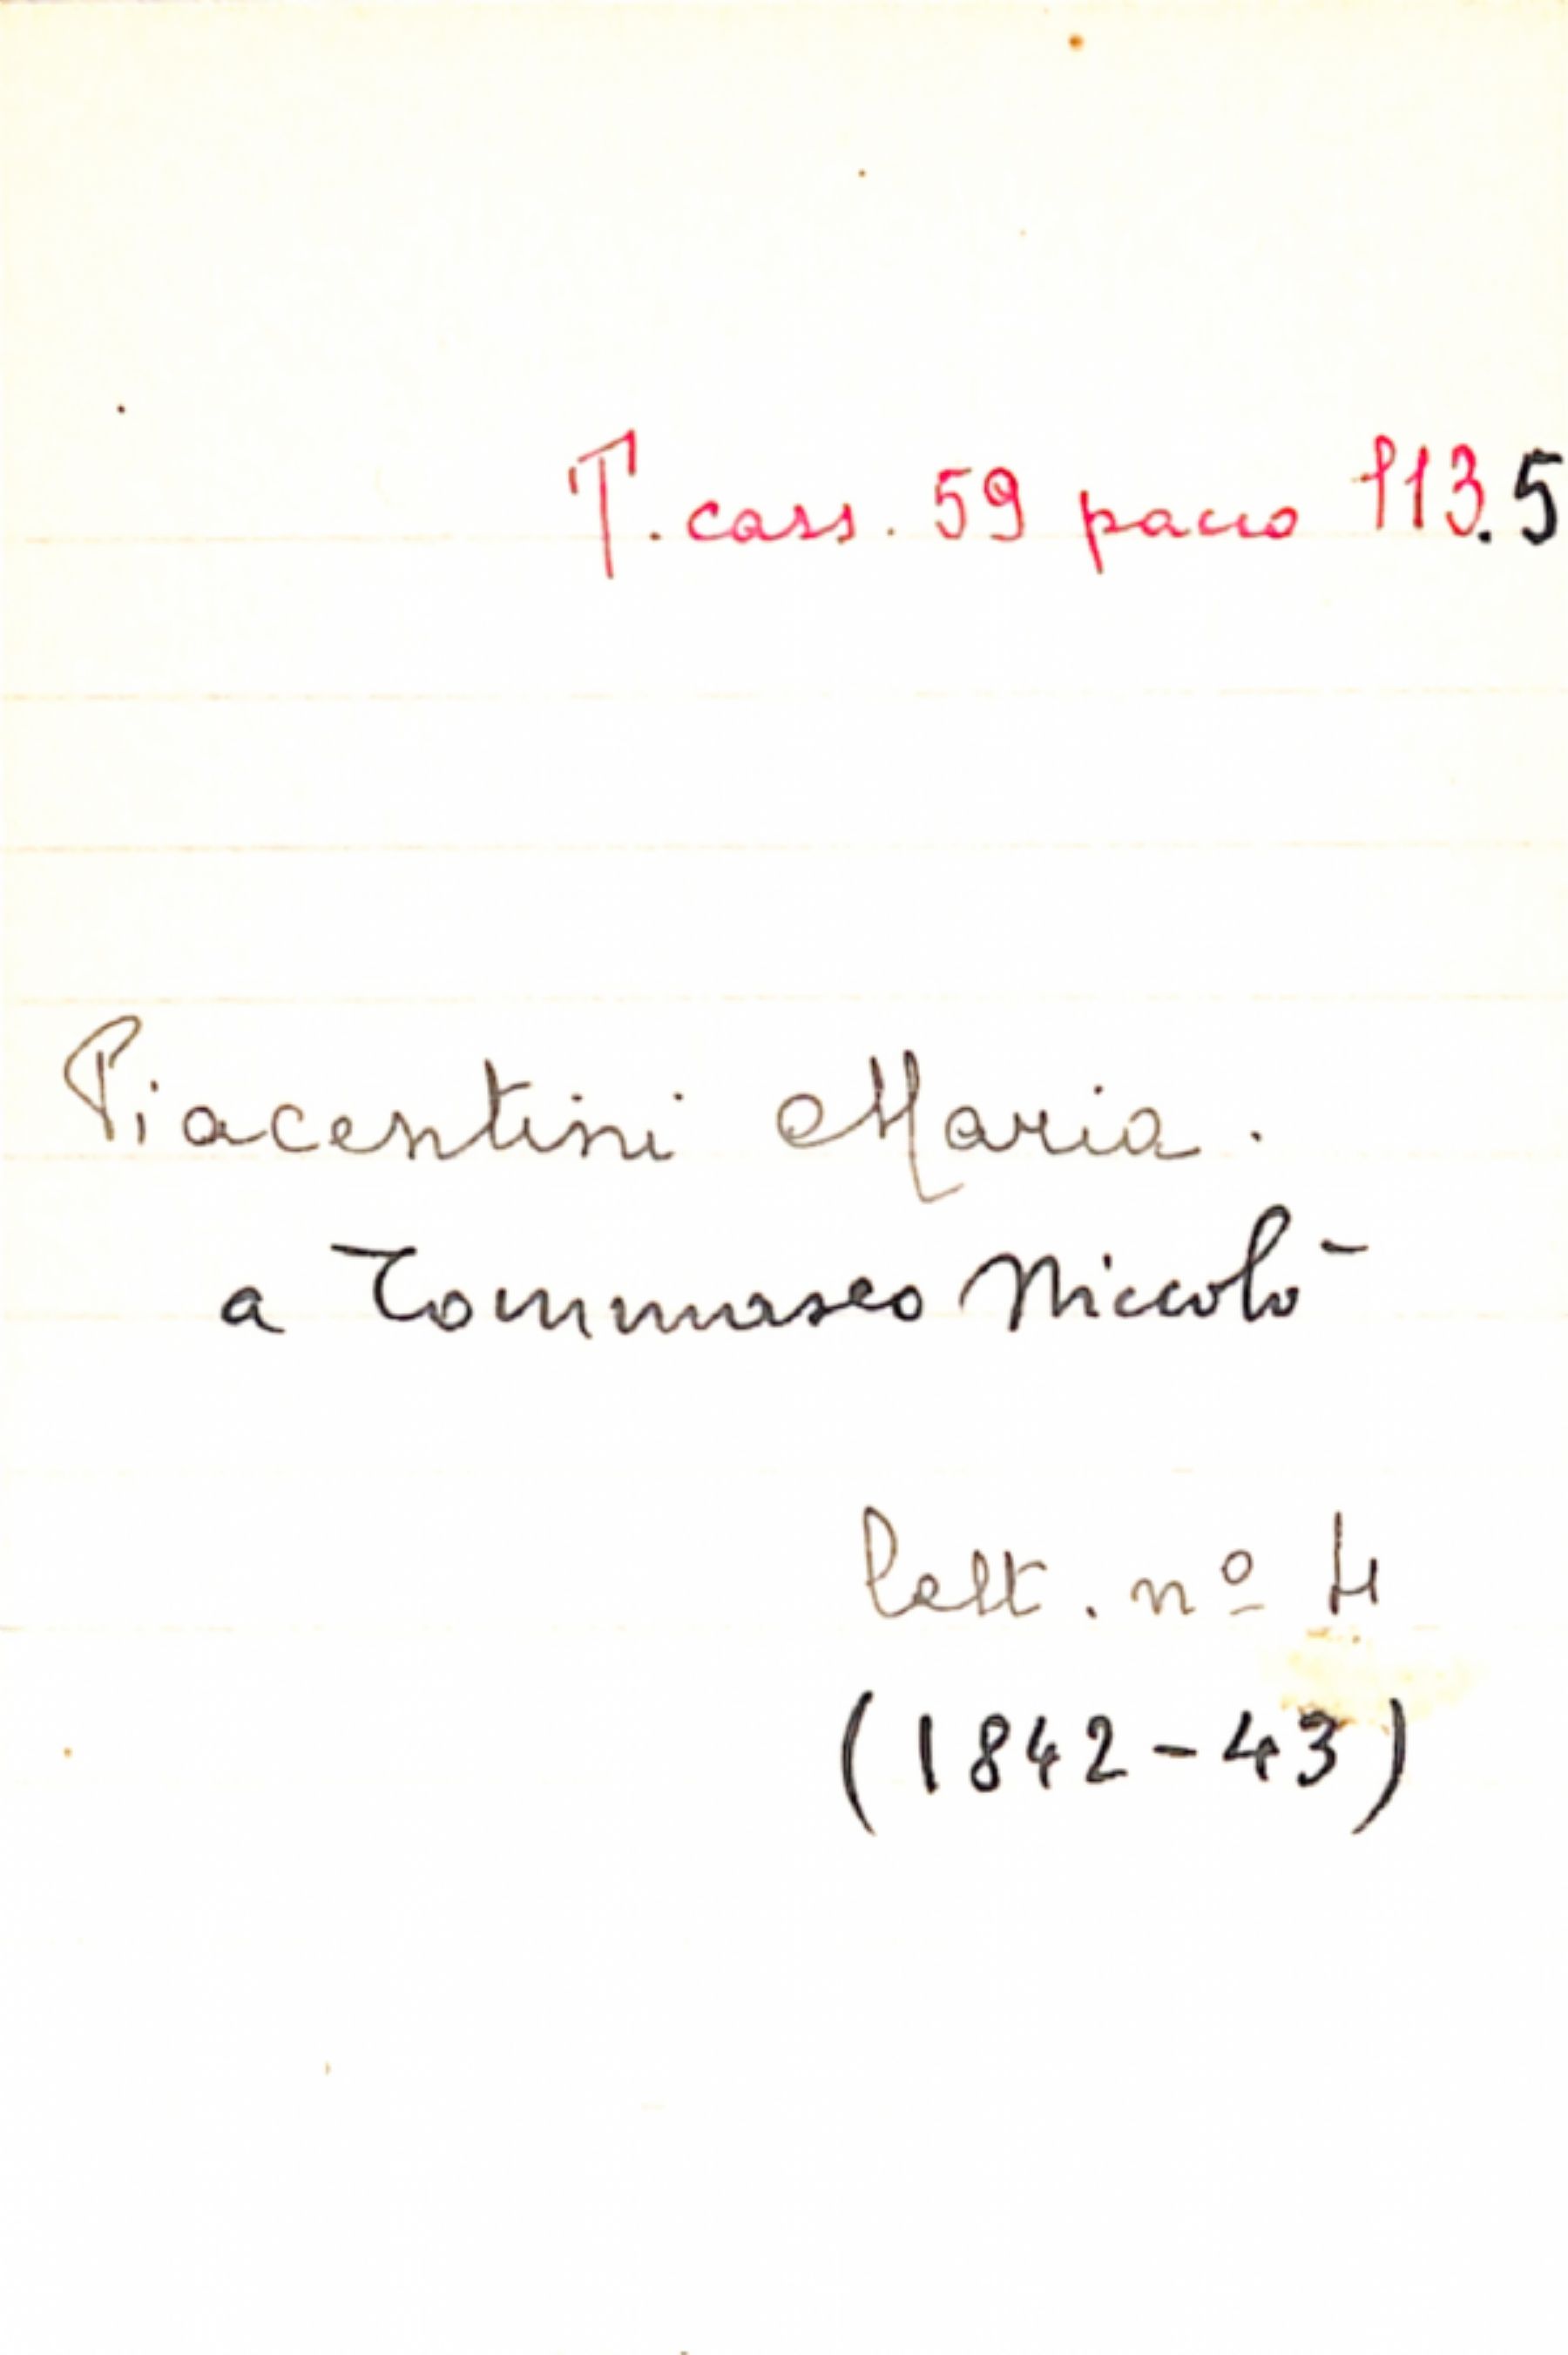 T. cass. 59 pacco 113.5
Piacentini Maria.
a Tommaseo Niccolò
lett. nº 4
(1842-43)